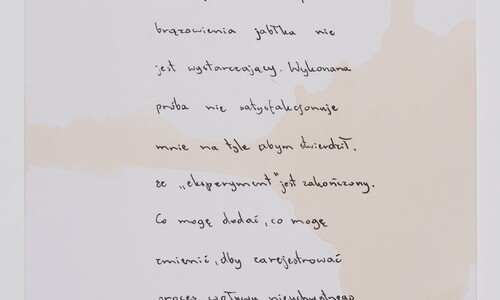 brązowienia jabłka nie
jest wystarczający. Wykonana
próba nie satysfakcjonuje
mnie na tyle abym stwierdził,
że „eksperyment" jest zakończony.
Co mogę dodać, co mogę
zmienić, aby zarejestrować
proces wpływu nieuchwytnego